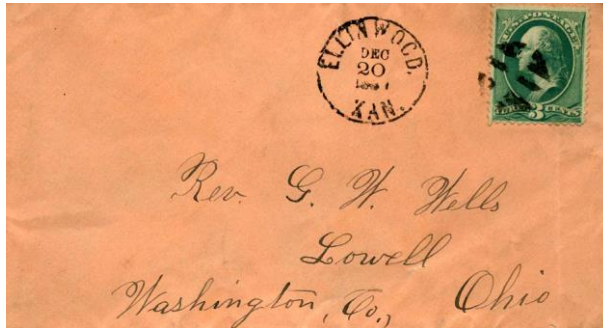 ELLINWOOD.
DEC
20
KAN.
U.S. POSTAGE
THREE 3 CENTS
Rev. G. W. Wells
Lowell
Washington, Co., Ohio